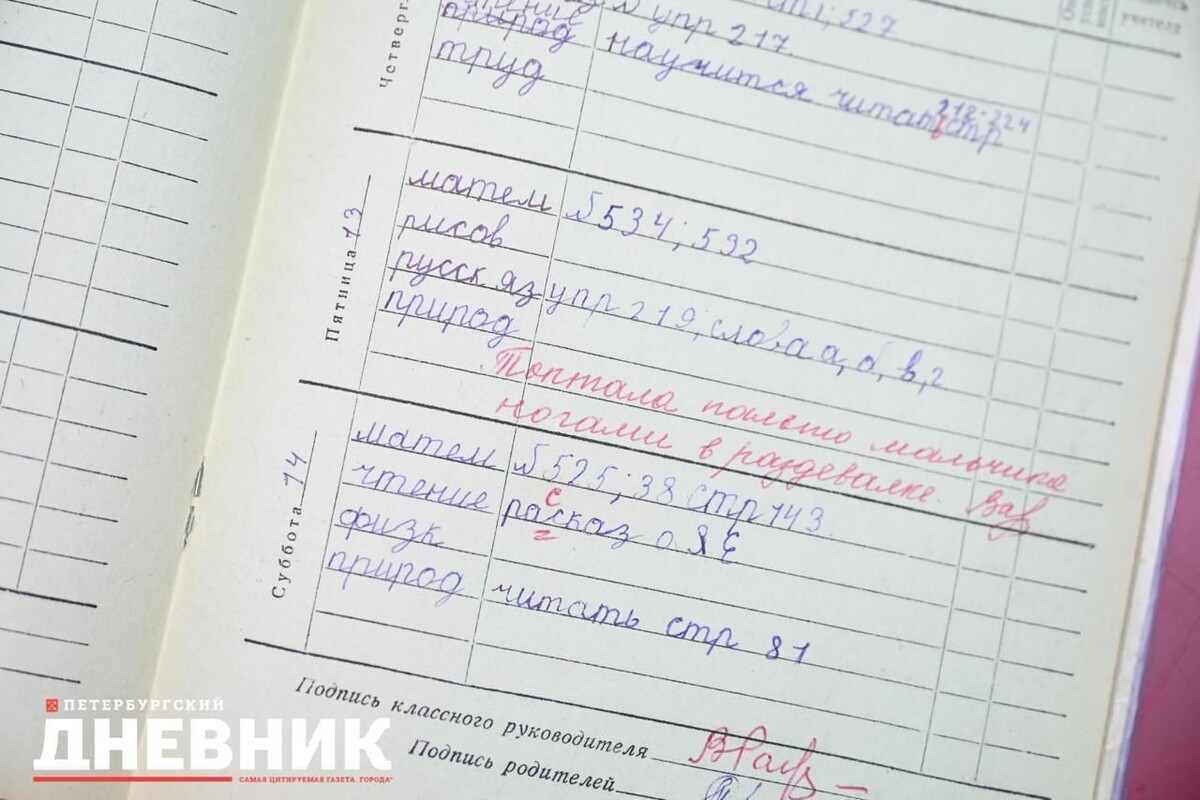 Четверг
чтение
упр 217
природ научится читат стр 218-224
труд
Пятница 13
матем № 534; 532
рисов
русск яз упр 219; слова а, б, в, г
природ
Топтала пальто мальчика
ногами в раздевалке.
Суббота 14
матем № 525; 38 стр 143
чтение расказ о Я Е
с
физк
природ читать стр 81
Подпись классного руководителя
Подпись родителей
ПЕТЕРБУРГСКИЙ
ДНЕВНИК
САМАЯ ЦИТИРУЕМАЯ ГАЗЕТА ГОРОДА*